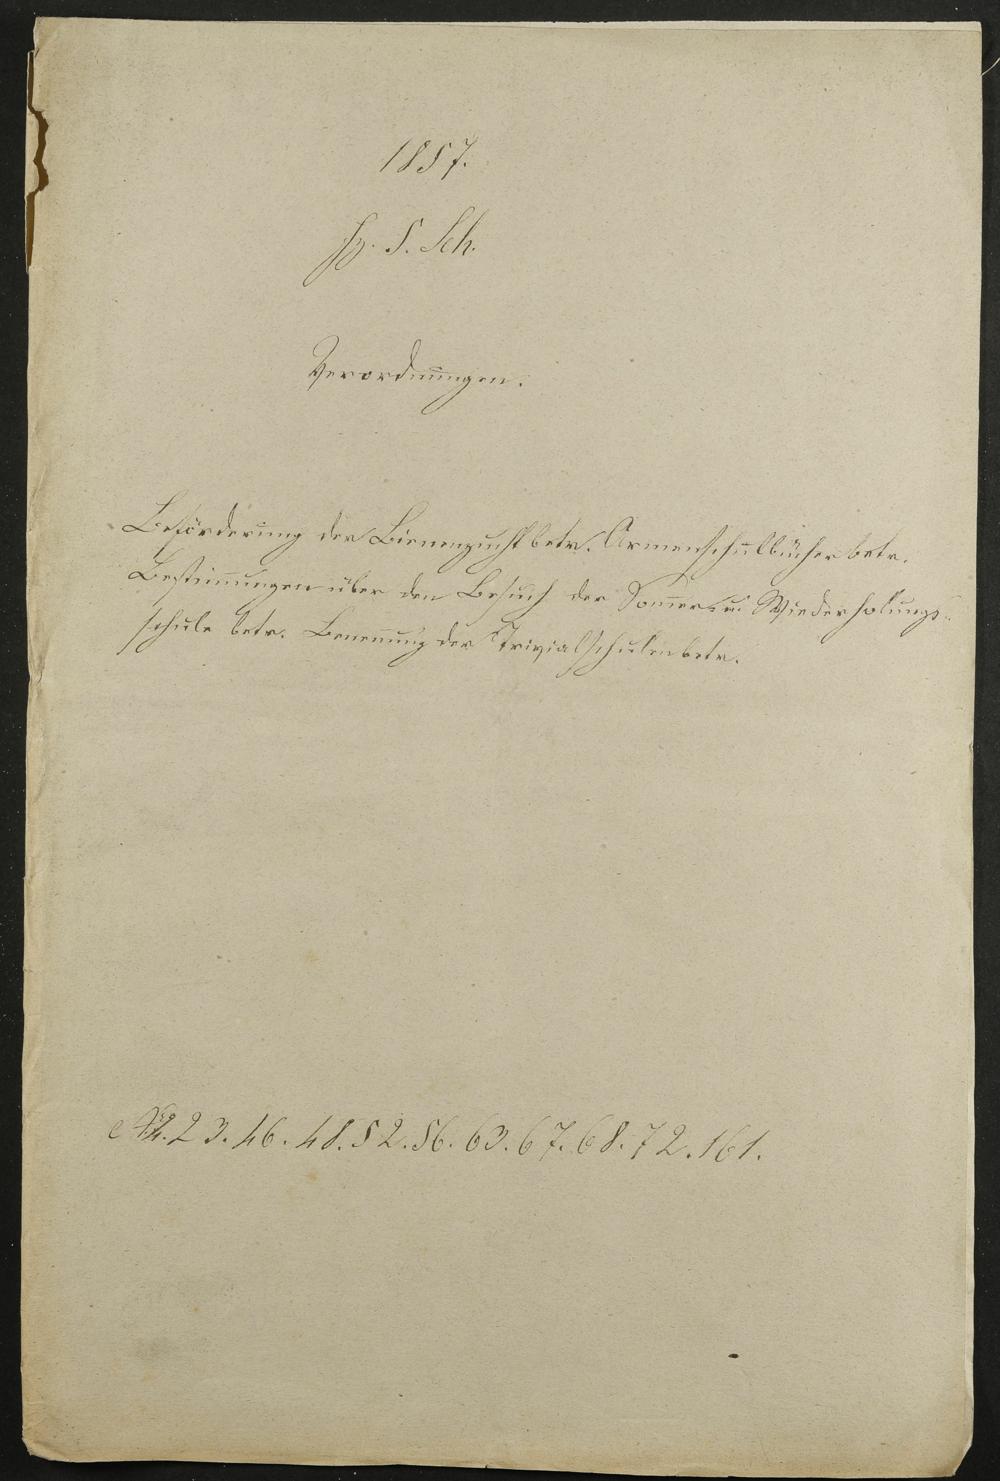 1857.
Fz. 5. Sch.
Verordnungen.
Beförderung der Bienenzucht betr. Armenschulbücher betr.
Bestim̅ungen über den Besuch der Som̅er- u. Wiederholungs-
schule betr. Benen̅ung der Trivialschulen betr.
No. 23. 46. 48. 52. 56. 63. 67. 68. 72. 161.